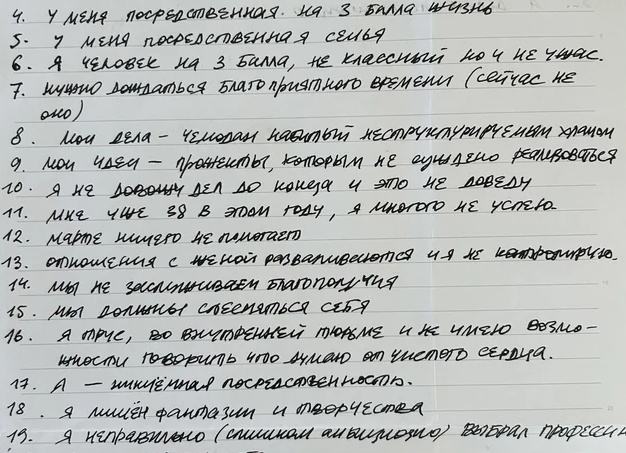 4. У меня посредственная. на 3 балла жизнь
5. У меня посредственная семья
6. Я человек на 3 балла, не классный но и не ужас.
7. нужно дождаться благоприятного времени (сейчас не
оно)
8. мои дела – чемодан набитый неструктурируемым хламом
9. мои идеи – прожекты, которым не суждено реализоваться
10. я не довожу дел до конца и это не доведу
11. мне уже 38 в этом году, я многого не успею
12. Марте ничего не помогает
13. отношения с женой разваливаются и я не контролирую.
14. мы не заслуживаем благополучия
15. мы должны стесняться себя
16. я трус, во внутренней тюрьме и не имею возмо-
жности говорить что думаю от чистого сердца.
17. А – никчёмная посредственность.
18. я лишён фантазии и творчества
19. я неправильно (слишком амбициозно) выбрал профессию